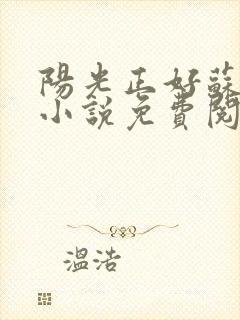 陽光正好蘇
小說免費閱
溫浩